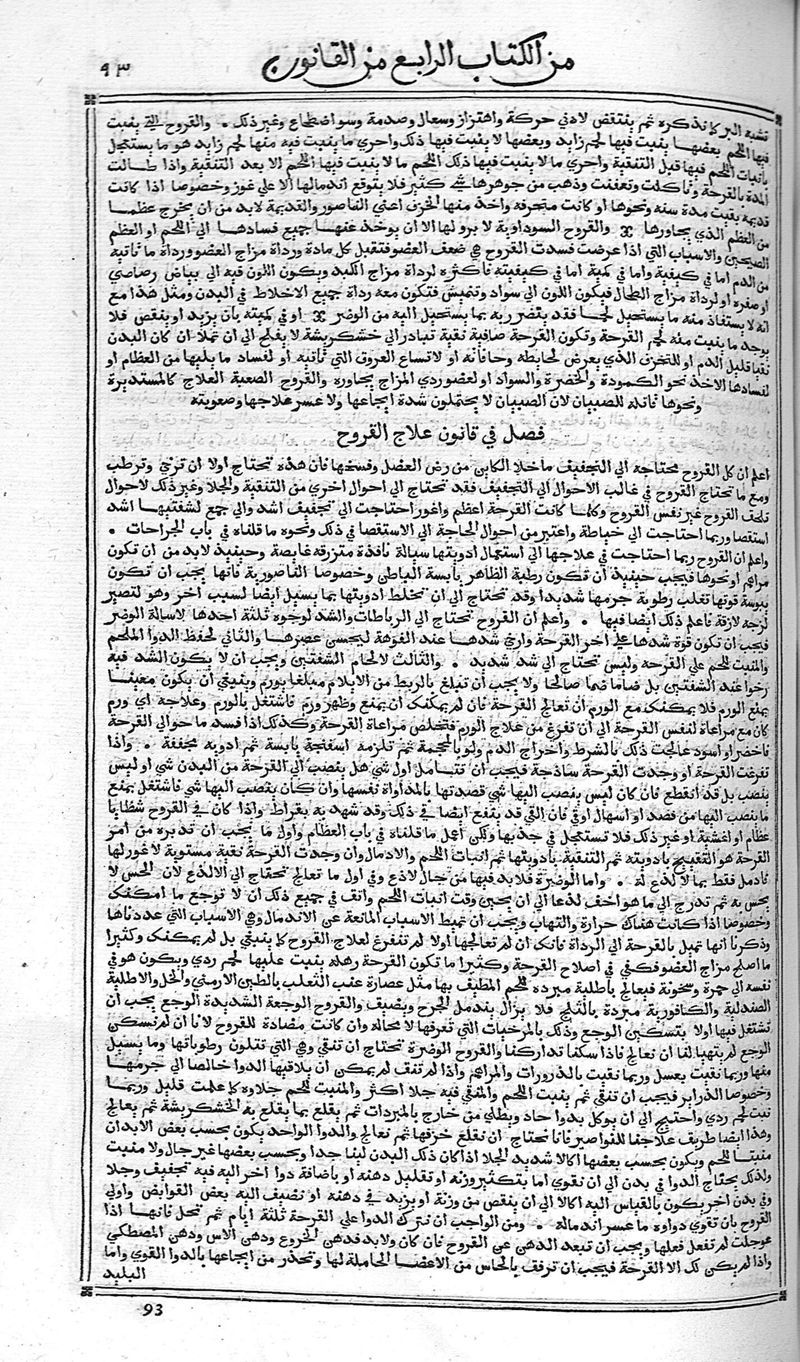 من الكتاب الرابع من القانون ٩٣
تشبه البر كما نذكره ثم ينتقض لادني حركة واهتزاز وسعال وصدمة وسو اضطجاع وغير ذلك . والقروح التي ينبت
فيها اللحم بعضها ينبت فيها لحم زايد وبعضها لا ينبت فيها ذلك واحري ما ينبت فيه منها لحم زايد هو ما يستعجل
بانبات اللحم فيها قبل التنقية واحري ما لا ينبت فيها ذلك اللحم ما لا ينبت فيها اللحم الا بعد التنقية واذا طالت
المدة بالقرحة وتاكلت وتعفنت وذهب من جوهرها شي كثير فلا يتوقع اندمالها الا علي غور وخصوصا اذا كانت
قديمه بقيت مدة سنه ونحوها او كانت متحرفه واخذ منها الخزف اعني الفاصور والقديمة لابد من ان يخرج عظما
من العظم الذي يجاورها والقروح السوداوية لا برو لها الا ان يوخذ عنها جميع فسادها الي اللحم او العظم
الصحيحين والاسباب التي اذا عرضت فسدت القروح هي ضعف العضو فتقبل كل مادة ورداة مزاج العضو ورداة ما ناتيه
من الدم اما في كيفية واما في كمية اما في كيفيته فاكثره لرداة مزاج الكبد ويكون اللون فيه الي بياض رصاصي
او صفره او لرداة مزاج الطحال فيكون اللون الي سواد وتنميش فتكون معه رداة جميع الاخلاط في البدن ومثل هذا مع
انه لا يستفاد منه ما يستحيل لحما فقد يتضرر به بما يستحيل اليه من الوضر او في كميته بان يزيد او ينقص فلا
يوجد ما ينبت منه لحم القرحة وتكون القرحة صافية نقية تبادر الي خشكريشة لا يفلح الي ان تملا ان كان البدن
نقيا قليل الدم او للتخزف الذي يعرض لحايطه وحافاته او لاتساع العروق التي تاتيه او لفساد ما يليها من العظام او
لفسادها الاخذ نحو الكمودة والخضرة والسواد او لعضو ردي المزاج يجاوره والقروح الصعبة العلاج كالمستديرة
ونحوها تاتله للصبيان لان الصبيان لا يحتملون شدة ايجاعها ولا عسر علاجها وصعوبته
فصل في قانون علاج القروح
اعلم ان كل القروح محتاجة الي التجفيف ما خلا الكاين من رض العضل وفسخها فان هذه تحتاج اولا ان ترخي وترطب
ومع ما تحتاج القروح في غالب الاحوال الي التجفيف فقد تحتاج الي احوال اخري من التنقية والجلا وغير ذلك لاحوال
تلحق القروح غير نفس القروح وكلما كانت القرحة اعظم واغور احتاجت الي تجفيف اشد والي جمع لشفتيها اشد
استقصا وربما احتاجت الي خياطة واعتبر من احوال الحاجة الي الاستقصا في ذلك ونحوه ما قلناه في باب الجراحات .
واعلم ان القروح ربما احتاجت في علاجها الي استعمال ادويتها سيالة نافذة منزرقه غايصة وحينيذ لابد من ان تكون
مراهم او نحوها فيجب حينيذ ان تكون رطبة الظاهر يابسة الباطن وخصوصا الفاصورية فانها يجب ان تكون
يبوسة قوتها تغلب رطوبة جرمها شديدا وقد تحتاج الي ان تخلط ادويتها بما يسيل ايضا لسبب اخر وهو لتصير
لزجه لازقة فاعلم ذلك ايضا فيها . واعلم ان القروح تحتاج الي الرباطات والشد لوجوه ثلثة احدها لاسالة الوضر
فيجب ان تكون قوة شدها علي اخر القرحة وارخي شدها عند الفوهة ليحسن عصرها والثاني لحفظ الدوا الملحم
والمنبت للحم علي القرحه وليس تحتاج الي شد شديد . والثالث لالحام الشفتين ويجب ان لا يكون الشد فيه
رخوا عند الشفتين بل ضاما ضما صالحا ولا يجب ان تبلغ بالربط من الايلام مبلغا يورم وينبغي ان يكون معينا
يمنع الورم فلا يمكنك مع الورم ان تعالج القرحة فان لم يمكنك ان يمنع وظهر ورم فاشتغل بالورم وعلاجه اي ورم
كان مع مراعاة لنفس القرحة الي ان تفرغ من علاج الورم فتخلص مراعاة القرحة وكذلك اذا فسد ما حوالي القرحة
فاخضر او اسود عالجت ذلك بالشرط واخراج الدم ولو بالمحجمة ثم تلزمه اسفنجة يابسة ثم ادوية مجففة . واذا
تفرغت القرحة او وجدت القرحة ساذجة فيجب ان تتامل اول شي هل ينصب الي القرحة من البدن شي او ليس
ينصب بل قد انقطع فان كان ليس ينصب اليها شي قصدتها بالمداواة نفسها وان كان ينصب اليها شي فاشتغل بمنع
ما ينصب اليها من فصد او اسهال او قي فان القي قد ينفع ايضا في ذلك وقد شهد به بقراط واذا كان في القروح شظايا
عظام او اغشية او غير ذلك فلا تستعجل في جذبها ولكن اعمل ما قلناه في باب العظام واول ما يجب ان تدبره من امر
القرحة هو التقييح بادويته ثم التنقية بادويتها ثم انبات اللحم والادمال وان وجدت القرحة نقية مستوية لا غور لها
فادمل فقط بما لا لذع له . واما الوضرة فلابد فيها من جال لاذع وفي اول ما تعالج تحتاج الي الالذع لان الحس لا
يحس به ثم تدرج الي ما هو اخف لذعا الي ان يحين وقت انبات اللحم واتق في جميع ذلك ان لا توجع ما امكنك
وخصوصا اذا كانت هناك حرارة والتهاب ويجب ان تميط الاسباب المانعة عن الاندمال وهي الاسباب التي عددناها
وذكرنا انها تميل بالقرحة الي الرداة فانك ان لم تعالجها اولا لم تتفرغ لعلاج القروح كما ينبغي بل لم يمكنك وكثيرا
ما اصلح مزاج العضو فكفي في اصلاح القرحة وكثيرا ما تكون القرحة رهله ينبت عليها لحم ردي ويكون هو في
نفسه الي حمرة وسخونة فيعالج باطلية مبرده للحم المطيف بها مثل عصارة عنب الثعلب بالطين الارمني والخل والاطلية
الصندلية والكافورية مبردة بالثلج فلا يزال يندمل الجرح ويضيف والقروح الوجعة الشديدة الوجع يجب ان
تشتغل فيها اولا بتسكين الوجع وذلك بالمرخيات التي تعرفها لا محاله وان كانت مضادة للقروح لانا ان لم نسكن
الوجع لم يتهيا لنا ان نعالج فاذا سكنا تداركنا والقروح الوضرة تحتاج ان تنقي وهي التي تتلون رطوباتها وما يسيل
منها وربما نقيت بغسل وربما نقيت بالذرورات والمراهم واذا لم تنقف لم يمكن ان يلاقيها الدوا خالصا الي جرمها
وخصوصا الذراير فيجب ان تنقي ثم ينبت اللحم والمنقي فيه جلا اكثر والمنبت للحم جلاوه كما علمت قليل وربما
نبت لحم ردي واحتيج الي ان يوكل بدوا حاد ويطلي من خارج بالمبردات ثم يقلع بما يقلع به الخشكريشة ثم يعالج
وهذا ايضا طريق علاجنا للنواصير فانا نحتاج ان نقلع خزفها ثم نعالج والدوا الواحد يكون بحسب بعض الابدان
منبتا للحم ويكون بحسب بعضها اكالا شديد الجلا اذا كان ذلك البدن لينا جدا وبحسب بعضها غير جال ولا منبت
ولذلك يحتاج الدوا في بدن الي ان نقوي اما بتكثير وزنه او تقليل دهنه او باضافة دوا اخر اليه فيه تجفيف وجلا
وفي بدن اخر يكون بالقياس اليه اكالا الي ان ينقص من وزنة او يزيد في دهنه او نضيف اليه بعض القوابض واولي
القروح بان تقوي دواوه ما عسر اندماله . ومن الواجب ان نترك الدوا علي القرحة ثلثة ايام ثم تحل فانها اذا
عوجلت لم تفعل فعلها ويجب ان تبعد الدهن عن القروح فان كان ولابد فدهن الخروع ودهن الاس ودهن المصطكي
واذا لم يمكن لك الا القرحة فيجب ان ترفق بالحاس من الاعضا الحاملة لها وتحذر من ايجاعها بالدوا القوي واما
البليد
93